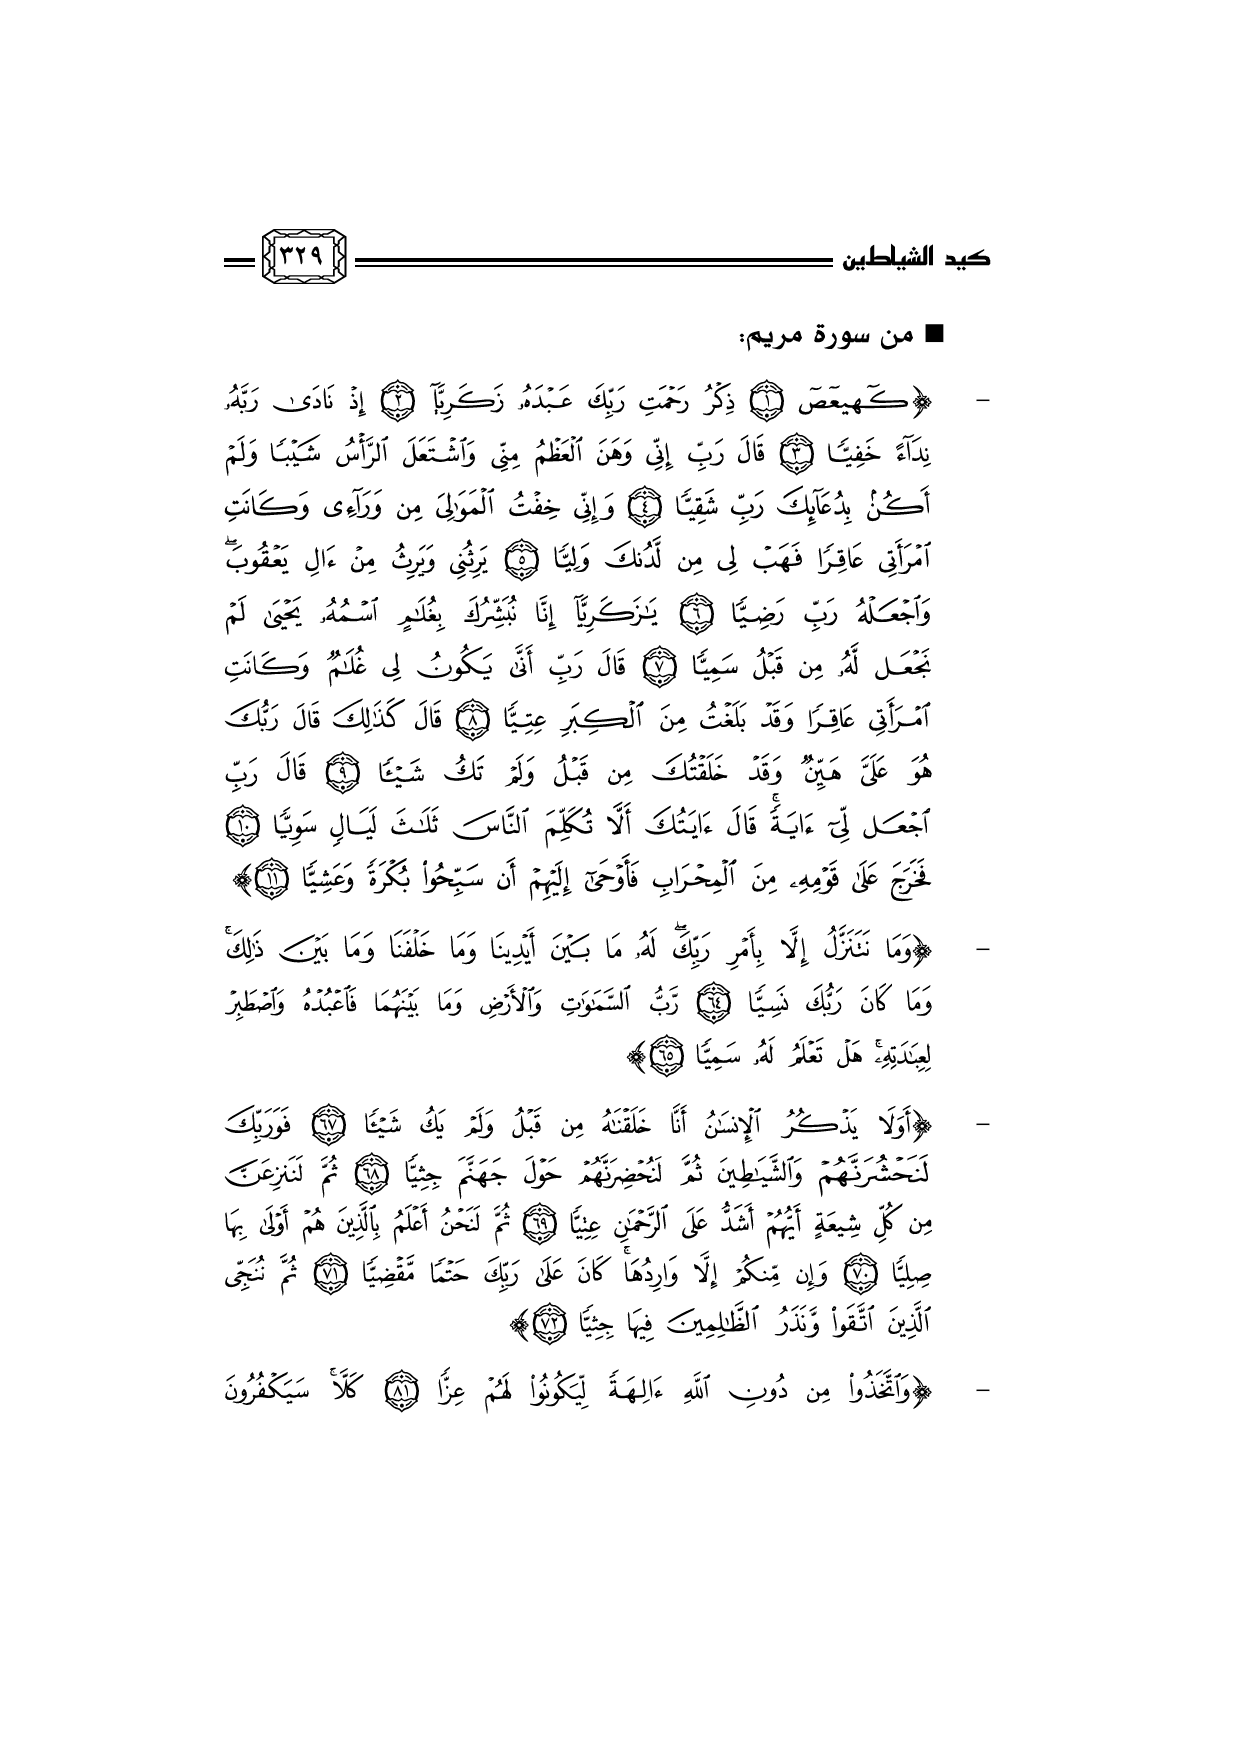 كيد الشياطين ٣٢٩
■ من سورة مريم:
- ﴿كٓهيعٓصٓ ١ ذِكْرُ رَحْمَتِ رَبِّكَ عَبْدَهُۥ زَكَرِيَّآ ٢ إِذْ نَادَىٰ رَبَّهُۥ
نِدَآءً خَفِيًّا ٣ قَالَ رَبِّ إِنِّى وَهَنَ ٱلْعَظْمُ مِنِّى وَٱشْتَعَلَ ٱلرَّأْسُ شَيْبًا وَلَمْ
أَكُنۢ بِدُعَآئِكَ رَبِّ شَقِيًّا ٤ وَإِنِّى خِفْتُ ٱلْمَوَٰلِىَ مِن وَرَآءِى وَكَانَتِ
ٱمْرَأَتِى عَاقِرًا فَهَبْ لِى مِن لَّدُنكَ وَلِيًّا ٥ يَرِثُنِى وَيَرِثُ مِنْ ءَالِ يَعْقُوبَۖ
وَٱجْعَلْهُ رَبِّ رَضِيًّا ٦ يَٰزَكَرِيَّآ إِنَّا نُبَشِّرُكَ بِغُلَٰمٍ ٱسْمُهُۥ يَحْيَىٰ لَمْ
نَجْعَل لَّهُۥ مِن قَبْلُ سَمِيًّا ٧ قَالَ رَبِّ أَنَّىٰ يَكُونُ لِى غُلَٰمٌ وَكَانَتِ
ٱمْرَأَتِى عَاقِرًا وَقَدْ بَلَغْتُ مِنَ ٱلْكِبَرِ عِتِيًّا ٨ قَالَ كَذَٰلِكَ قَالَ رَبُّكَ
هُوَ عَلَىَّ هَيِّنٌ وَقَدْ خَلَقْتُكَ مِن قَبْلُ وَلَمْ تَكُ شَيْـًٔا ٩ قَالَ رَبِّ
ٱجْعَل لِّىٓ ءَايَةًۚ قَالَ ءَايَتُكَ أَلَّا تُكَلِّمَ ٱلنَّاسَ ثَلَٰثَ لَيَالٍ سَوِيًّا ١٠
فَخَرَجَ عَلَىٰ قَوْمِهِۦ مِنَ ٱلْمِحْرَابِ فَأَوْحَىٰٓ إِلَيْهِمْ أَن سَبِّحُوا۟ بُكْرَةً وَعَشِيًّا ١١﴾
- ﴿وَمَا نَتَنَزَّلُ إِلَّا بِأَمْرِ رَبِّكَۖ لَهُۥ مَا بَيْنَ أَيْدِينَا وَمَا خَلْفَنَا وَمَا بَيْنَ ذَٰلِكَۚ
وَمَا كَانَ رَبُّكَ نَسِيًّا ٦٤ رَّبُّ ٱلسَّمَٰوَٰتِ وَٱلْأَرْضِ وَمَا بَيْنَهُمَا فَٱعْبُدْهُ وَٱصْطَبِرْ
لِعِبَٰدَتِهِۦۚ هَلْ تَعْلَمُ لَهُۥ سَمِيًّا ٦٥﴾
- ﴿أَوَلَا يَذْكُرُ ٱلْإِنسَٰنُ أَنَّا خَلَقْنَٰهُ مِن قَبْلُ وَلَمْ يَكُ شَيْـًٔا ٦٧ فَوَرَبِّكَ
لَنَحْشُرَنَّهُمْ وَٱلشَّيَٰطِينَ ثُمَّ لَنُحْضِرَنَّهُمْ حَوْلَ جَهَنَّمَ جِثِيًّا ٦٨ ثُمَّ لَنَنزِعَنَّ
مِن كُلِّ شِيعَةٍ أَيُّهُمْ أَشَدُّ عَلَى ٱلرَّحْمَٰنِ عِتِيًّا ٦٩ ثُمَّ لَنَحْنُ أَعْلَمُ بِٱلَّذِينَ هُمْ أَوْلَىٰ بِهَا
صِلِيًّا ٧٠ وَإِن مِّنكُمْ إِلَّا وَارِدُهَاۚ كَانَ عَلَىٰ رَبِّكَ حَتْمًا مَّقْضِيًّا ٧١ ثُمَّ نُنَجِّى
ٱلَّذِينَ ٱتَّقَوا۟ وَّنَذَرُ ٱلظَّٰلِمِينَ فِيهَا جِثِيًّا ٧٢﴾
- ﴿وَٱتَّخَذُوا۟ مِن دُونِ ٱللَّهِ ءَالِهَةً لِّيَكُونُوا۟ لَهُمْ عِزًّا ٨١ كَلَّاۚ سَيَكْفُرُونَ